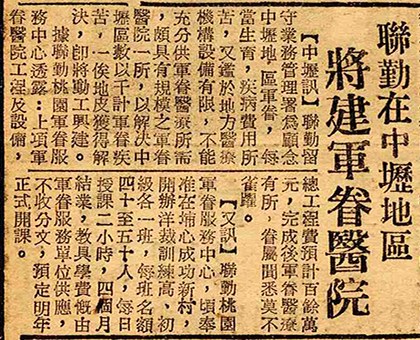 聯勤在中壢地區
將建軍眷醫院
【中壢訊】聯勤留
守業務管理署爲顧念
中壢地區軍眷,每
當生育,疾病費用所
苦,又鑑於地方醫療
機構設備有限,不能
充分供軍眷醫療所需
,頗具有規模之軍眷
醫院一所,以解決中
壢區數以千計軍眷疾
苦,一俟地皮獲得解
決,即將動工興建。
據聯勤桃園軍眷服
務中心透露:上項軍
眷醫院工程及設備,
總工程費預計百餘萬
元,完成後軍眷醫療
有所,眷屬聞悉莫不
雀躍。
【又訊】聯勤桃園
軍眷服務中心,頃奉
准在埔心成功新村,
開辦洋裁訓練高、初
級各一班,每班名額
四十至五十人,每日
授課二小時,四個月
結業,教具學費慨由
軍眷服務單位供應,
不收分文,預定明年
正式開課。